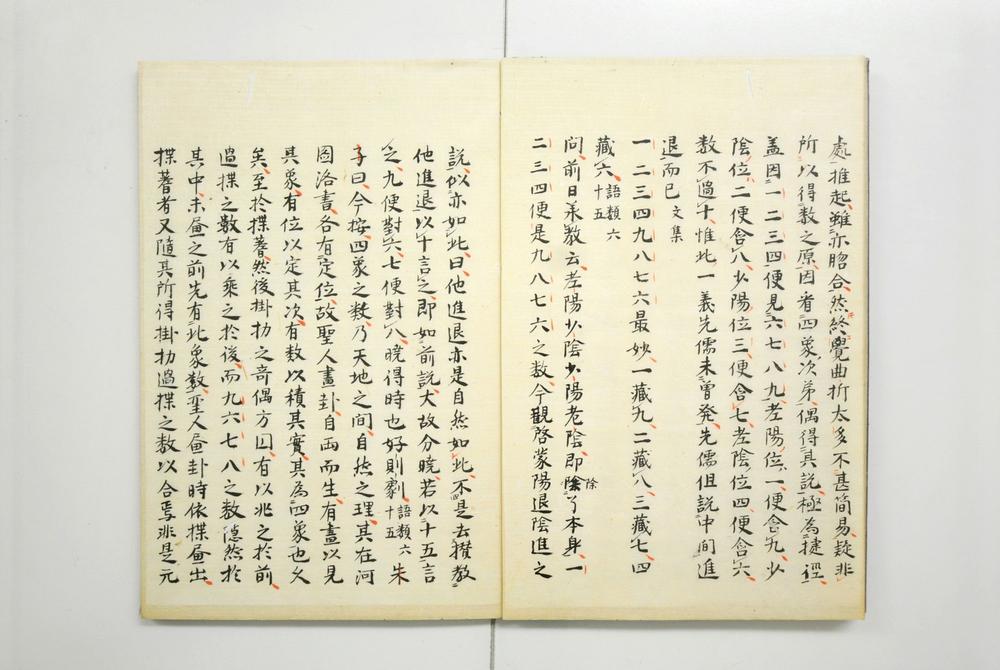 處推起雖亦脗合然終覺曲折太多不甚簡易疑非
所以得數之原因看四象次第偶得其說極為捷徑
盖因一二三四便見六七八九老陽位一便含九少
陰位二便含八少陽位三便含七老陰位四便含六
數不過十惟此一義先儒未曾發先儒但說中間進
退而已文集
一二三四九八七六最妙一藏九二藏八三藏七四
藏六語類六十五
問前日承教云老陽少陰少陽老陰即除了本身一
二三四便是九八七六之數今觀啓蒙陽退陰進之
說似亦如此曰他進退亦是自然如此不是去攢教
他進退以十言之即如前說大故分曉若以十五言
之九便對六七便對八曉得時也好則劇語類六十五朱
子曰今按四象之數乃天地之間自然之理其在河
圖洛書各有定位故聖人畫卦自兩而生有畫以見
其象有位以定其次有數以積其實其為四象也久
矣至於揲蓍然後掛扐之奇偶方圓有以兆之於前
過揲之數有以乘之於後而九六七八之數隱然於
其中未畫之前先有此象數聖人畫卦時依㨾畫出
揲蓍者又隨其所得掛扐過揲之數以合焉非是元